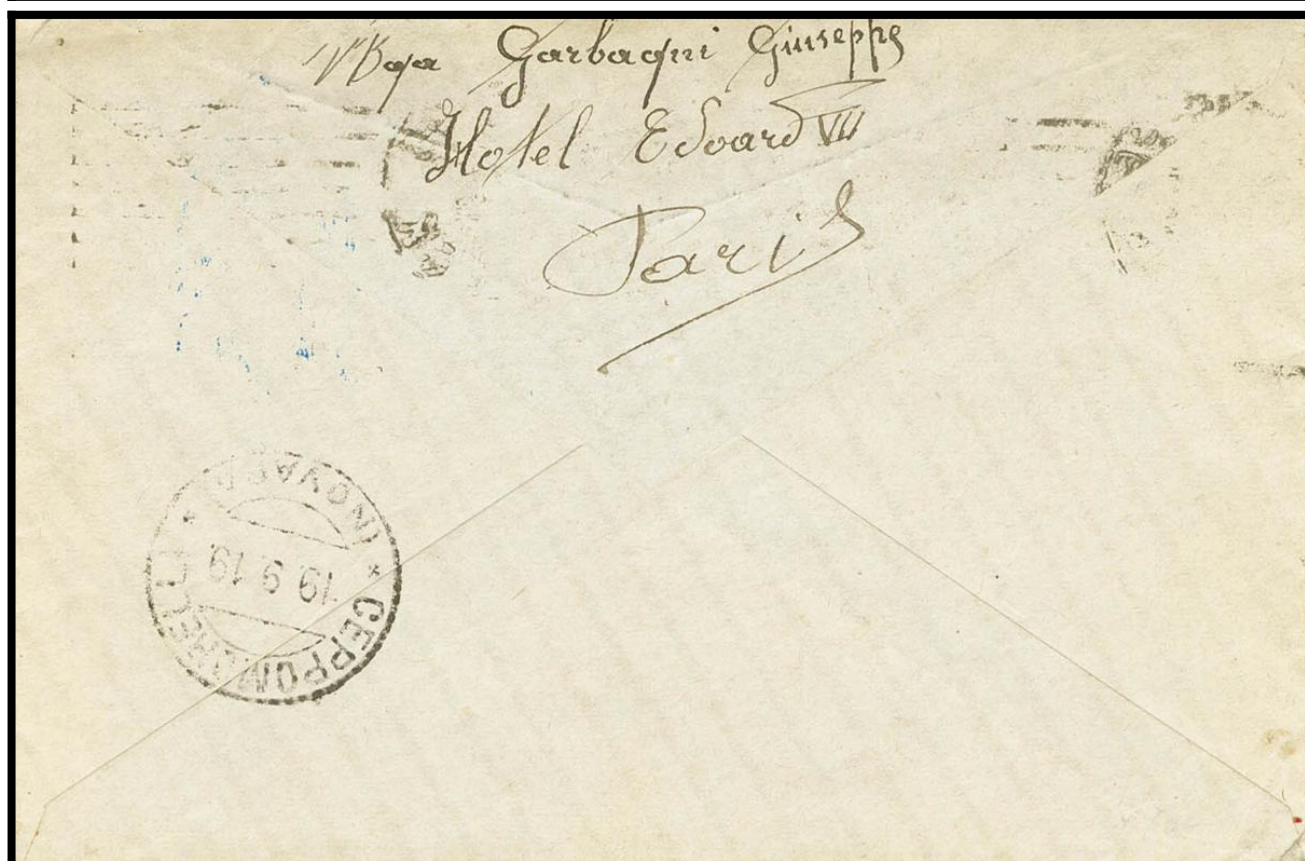 Garbagni Giuseppe
Hotel Edoard VII
Paris
CEPPOMORELLI
(NOVARA)
19.9.19.